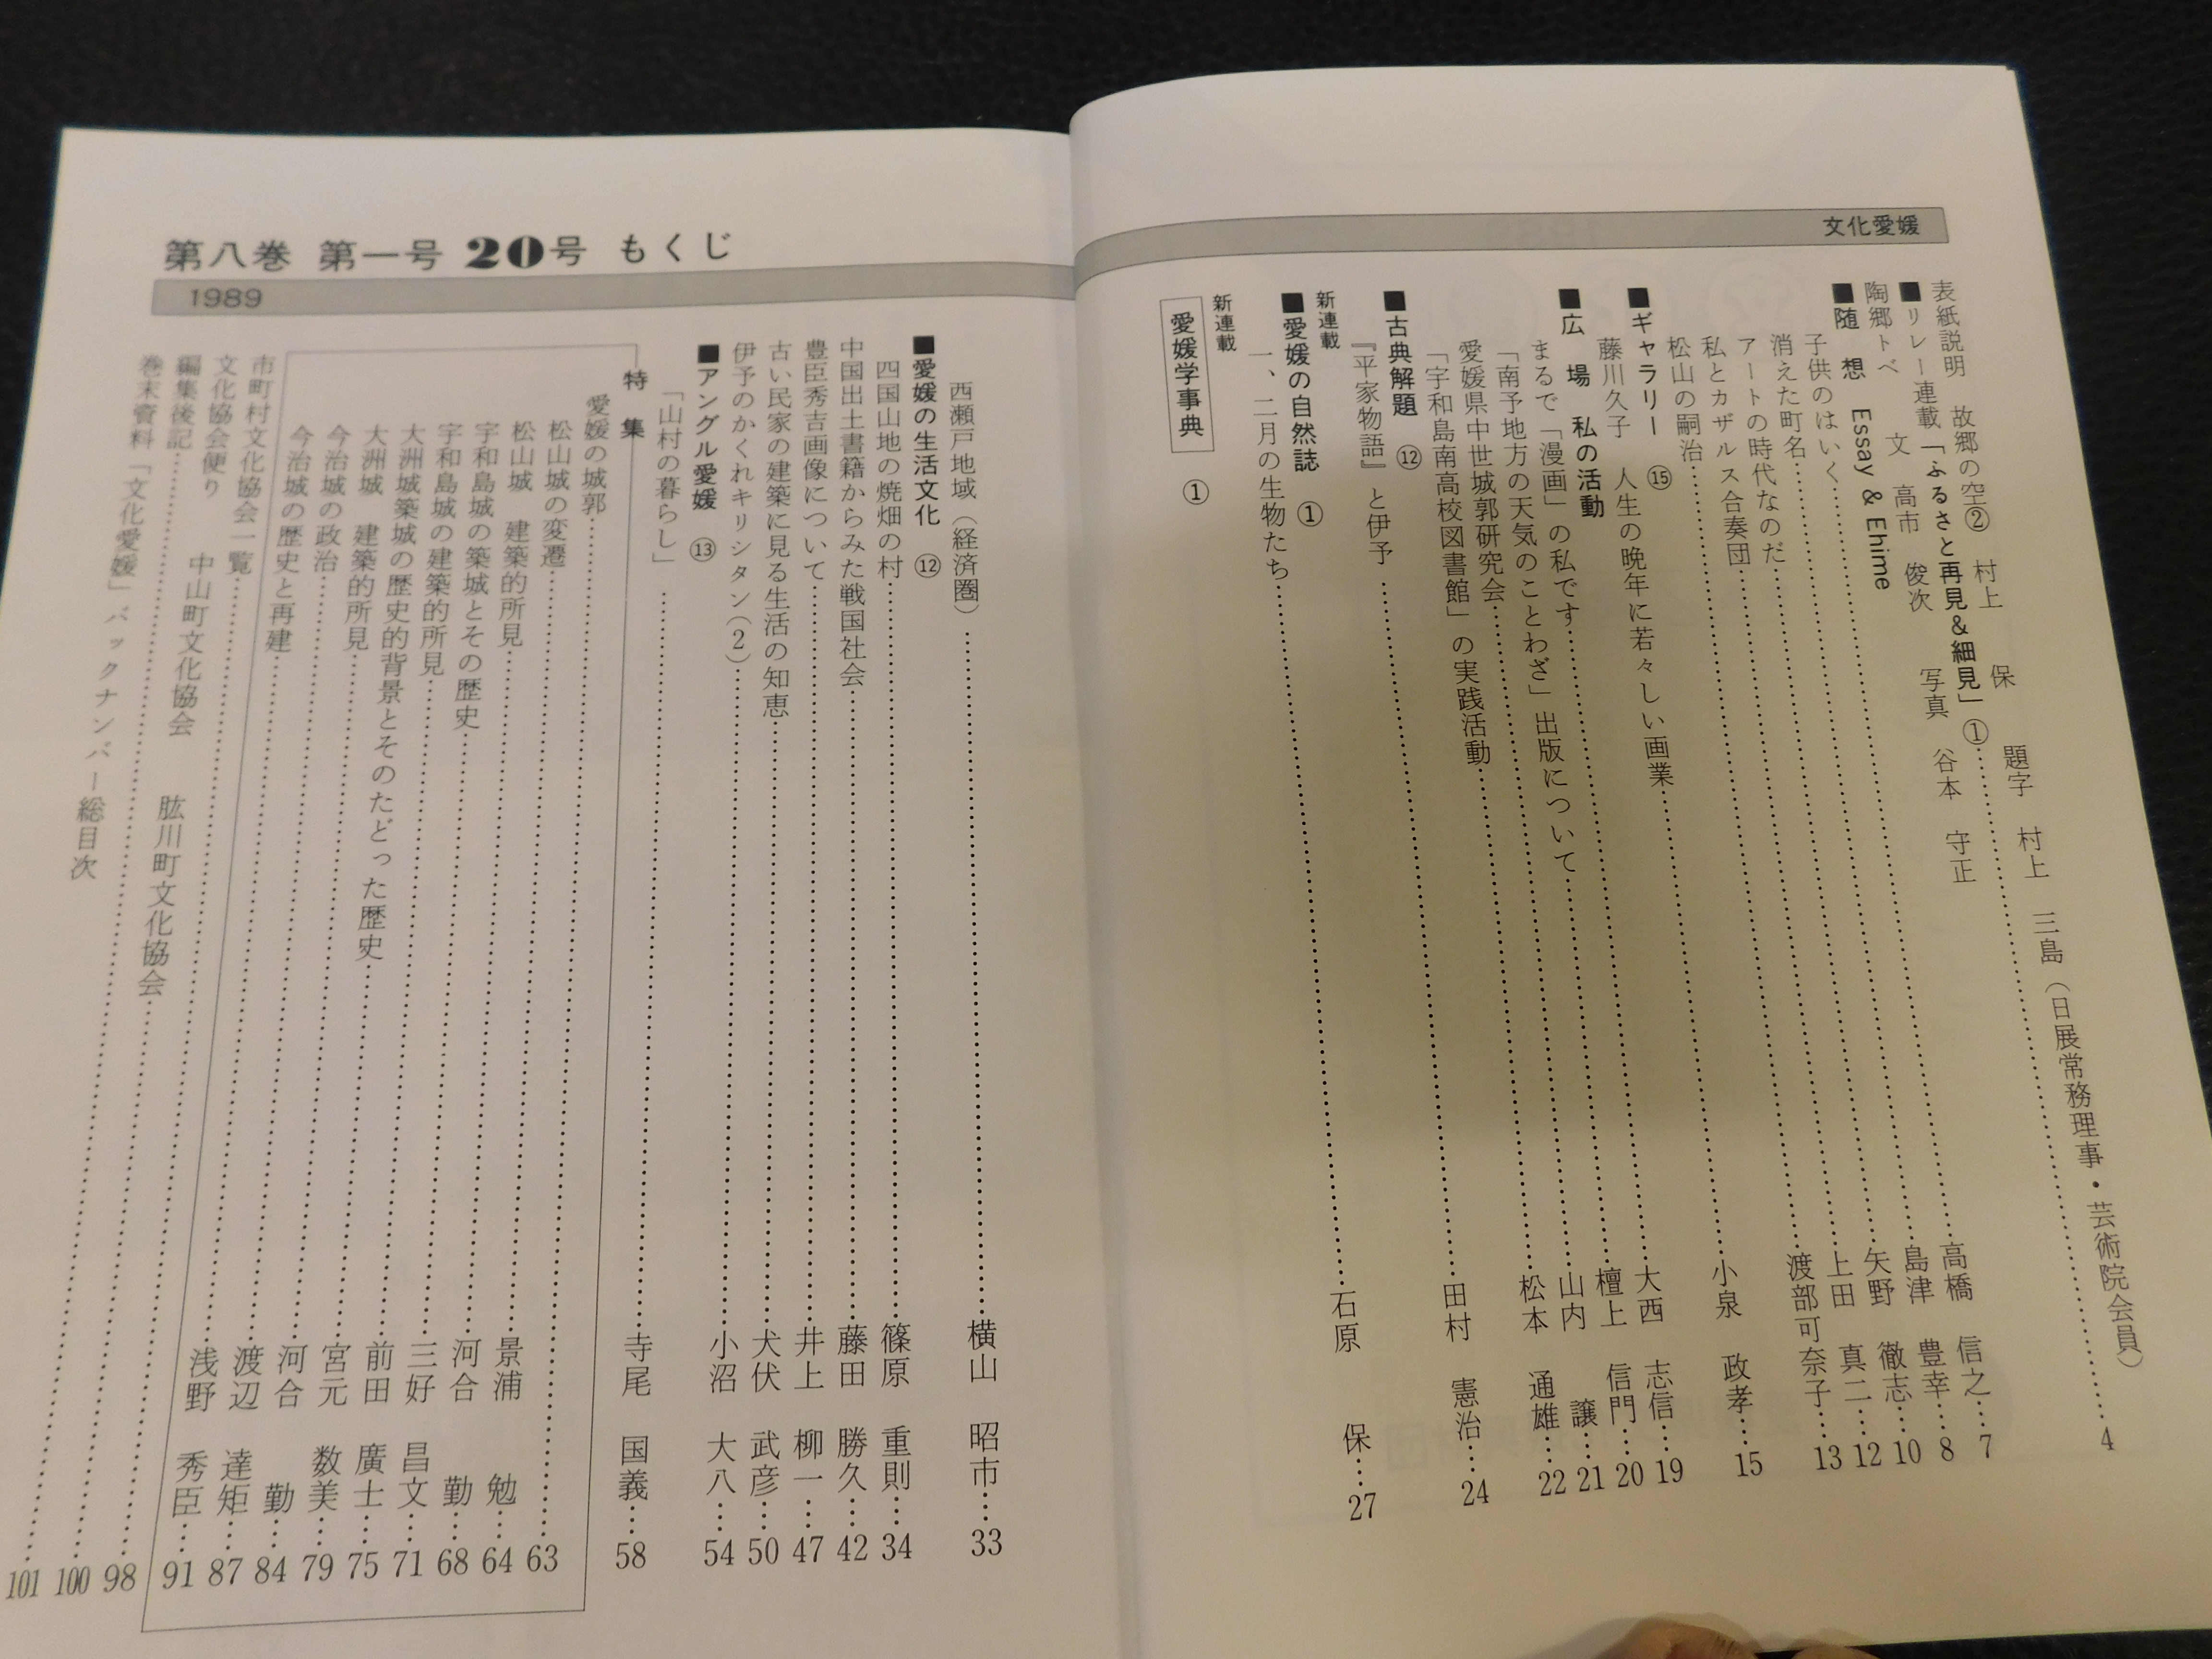 文化愛媛
表紙説明 故郷の空② 村上 保 題字 村上 三島(日展常務理事・芸術院会員)
■リレー連載「ふるさと再見&細見」①……4
陶郷トベ 文 高市 俊次 写真 谷本 守正
■随 想 Essay & Ehime
子供のはいく……高橋 信之……7
消えた町名……島津 豊幸……8
アートの時代なのだ……矢野 徹志……10
私とカザルス合奏団……上田 真二……12
松山の嗣治……渡部可奈子……13
■ギャラリー ⑮
藤川久子 人生の晩年に若々しい画業……小泉 政孝……15
■広 場 私の活動
まるで「漫画」の私です……大西 志信……19
「南予地方の天気のことわざ」出版について……檀上 信門……20
愛媛県中世城郭研究会……山内 譲……21
「宇和島南高校図書館」の実践活動……松本 通雄……22
■古典解題 ⑫
『平家物語』と伊予……田村 憲治……24
新連載
■愛媛の自然誌 ①
一、二月の生物たち……石原 保……27
新連載
愛媛学事典 ①
第八巻 第一号 20号 もくじ
1989
西瀬戸地域(経済圏)……横山 昭市……33
■愛媛の生活文化 ⑫
四国山地の焼畑の村……篠原 重則……34
中国出土書籍からみた戦国社会……藤田 勝久……42
豊臣秀吉画像について……井上 柳一……47
古い民家の建築に見る生活の知恵……犬伏 武彦……50
伊予のかくれキリシタン(2)……小沼 大八……54
■アングル愛媛 ⑬
「山村の暮らし」……寺尾 国義……58
特 集
愛媛の城郭……63
松山城の変遷……景浦 勉……64
松山城 建築的所見……河合 勤……68
宇和島城の築城とその歴史……三好 昌文……71
宇和島城の建築的所見……前田 廣士……75
大洲城築城の歴史的背景とそのたどった歴史……宮元 数美……79
大洲城 建築的所見……河合 勤……84
今治城の政治……渡辺 達矩……87
今治城の歴史と再建……浅野 秀臣……91
市町村文化協会一覧……98
文化協会便り 中山町文化協会 肱川町文化協会……100
編集後記……101
巻末資料「文化愛媛」バックナンバー総目次